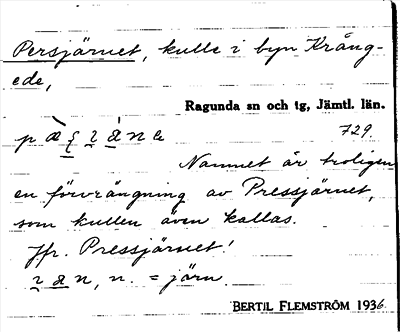 Persjärnet, kulle i byn Krång-
ede,
Ragunda sn och tg, Jämtl. län.
729.
Namnet är troligen
en förvrängning av Pressjärnet,
som kullen även kallas.
Jfr. Pressjärnet!
n. = järn
BERTIL FLEMSTRÖM 1936.